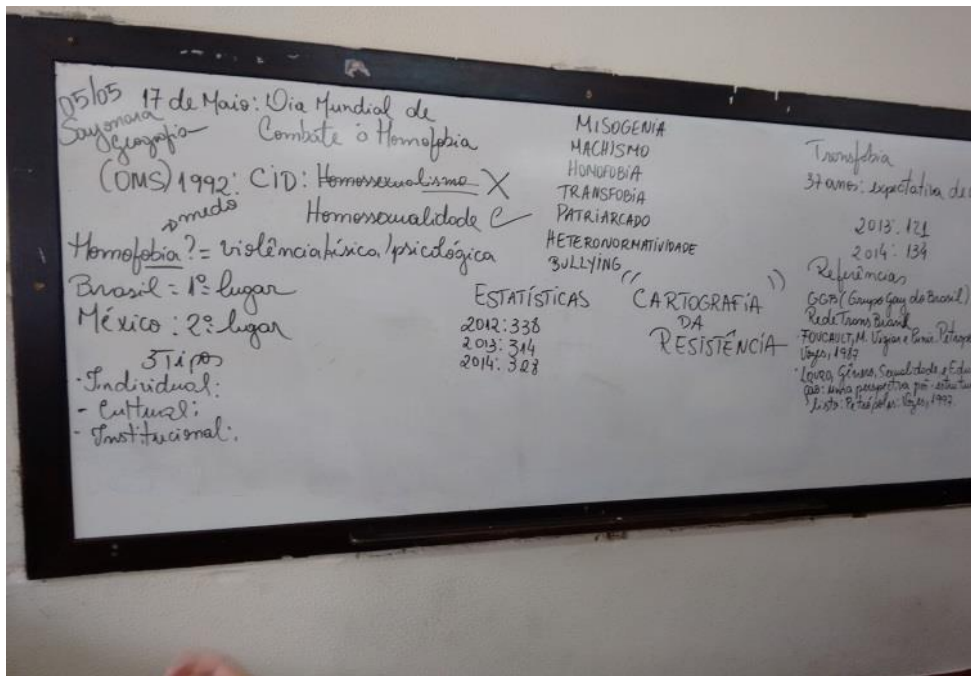 05/05 17 de Maio: Dia Mundial de
Sayonara Combate à Homofobia
Geografia
(OMS) 1992: CID: Homossexualismo X
Homossexualidade C
medo
Homofobia? = violência física/psicológica
Brasil = 1º lugar
México: 2º lugar
3 Tipos
· Individual:
- Cultural:
- Institucional:
MISOGENIA
MACHISMO
HOMOFOBIA
TRANSFOBIA
PATRIARCADO
HETERONORMATIVIDADE
BULLYING
ESTATÍSTICAS
2012: 338
2013: 314
2014: 328
"CARTOGRAFIA
DA
RESISTÊNCIA"
Transfobia
37 anos: expectativa de
2013: 121
2014: 134
Referências
GGB (Grupo Gay do Brasil)
Rede Trans Brasil
· FOUCAULT, M. Vigiar e Punir. Petrop
Vozes, 1987
· LOURO, Gênero, Sexualidade e Edu
ção: uma perspectiva pós-estrutu
lista: Petrópolis: Vozes, 1997.